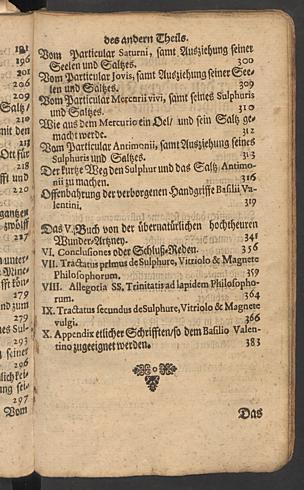 des andern Theils.
Vom Particular Saturni, samt Ausziehung seiner
Seelen und Saltzes. 300
Vom Particular Jovis, samt Ausziehung seiner See-
len und Saltzes. 309
Vom Particular Mercurii vivi, samt seines Sulphuris
und Saltzes. 310
Wie aus dem Mercurio ein Oel/ und sein Saltz ge-
macht werde. 312
Vom Particular Antimonii, samt Ausziehung seines
Sulphuris und Saltzes. 313
Der kurtze Weg den Sulphur und das Saltz Antimo-
nii zu machen. 316
Offenbahrung der verborgenen Handgriffe Basilii Va-
lentini, 319
Das V. Buch von der übernatürlichen hochtheuren
Wunder-Artzney. 341
VI. Conclusiones oder Schluß-Reden. 356
VII. Tractatus primus de Sulphure, Vitriolo & Magnete
Philosophorum. 359
VIII. Allegoria SS. Trinitatis ad lapidem Philosopho-
rum. 364
IX. Tractatus secundus de Sulphure, Vitriolo & Magnete
vulgi. 366
X. Appendix etlicher Schrifften/so dem Basilio Valen-
tino zugeeignet werden. 383
Das
191
196
201
206
209
Saltz/
210
mit den
213
218
220
227
279
297
Vom